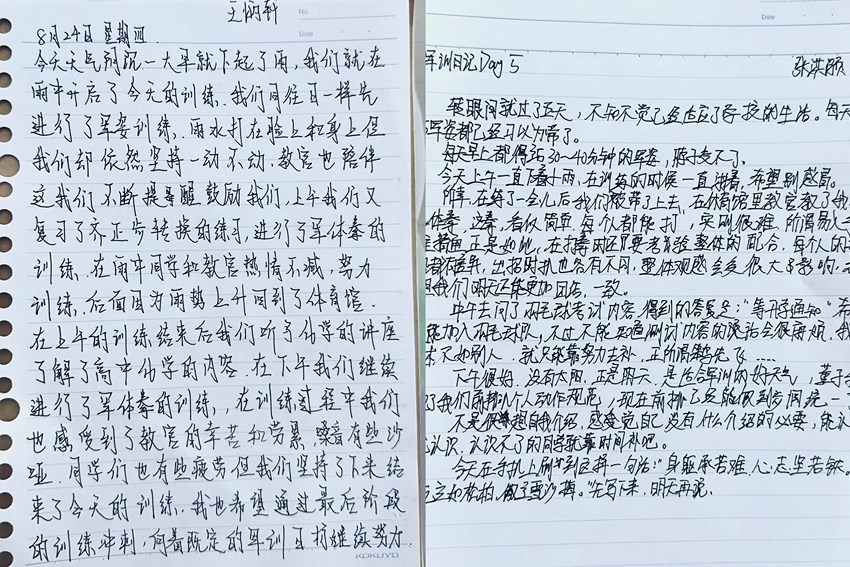 王炳轩
No.
Date
8月24日 星期四
今天天气阴沉一大早就下起了雨,我们就在
雨中开启了今天的训练.我们同往日一样先
进行了军姿训练.雨水打在脸上和身上但
我们却依然坚持一动不动.教官也陪伴
这我们不断提醒鼓励我们,上午我们又
复习了齐正步转换的练习,进行了军体拳的
训练.在雨中同学和教官热情不减,努力
训练.后面因为雨势上升回到了体育馆.
在上午的训练结束后我们听了化学的讲座
了解了高中化学的内容.在下午我们继续
进行了军体拳的训练,在训练过程中我们
也感受到了教官的辛苦和劳累,嗓音有些沙
哑.同学们也有些疲劳但我们坚持了下来结
束了今天的训练.我也希望通过最后阶段
的训练冲刺,向着既定的军训目标继续努力.
KOKUYO
Date
军训日记Day 5
张洪
转眼间就过了五天,不知不觉已经适应了学校的生活。每天
军姿都已经习以为常了。
每天早上都得站30~40分钟的军姿,脖子受不了。
今天上午一直下着小雨,在训练的时候一直淋着,希望别感冒。
所幸,在练了一会儿后我们被带了上去,在体育馆里教官教了我
体拳,这拳,看似简单,每个人都能打,实则很难,所谓易
正是如此,在打拳时还要考验整体的配合,每个人的
都有差异,出招时机也会有不同,整体观感会受很大影响,
我们明天还能更加团结,一致。
中午去问了乒乓球考试内容,得到的答复是:“等开学通知”希
能加入乒乓球队,不过不能知道测试内容的说话会很麻烦,我
不如别人,就只能靠努力去补,正所谓笨鸟先飞……
下午很好,没有太阳,正是阴天,是适合军训的好天气,
了我们前排个人动作规范,现在前排已经能做到步调统一
不是很想自我介绍,感受觉自己没有什么介绍的必要,能认
认识,认识不了的同学就靠时间补吧。
今天在手机上刷到这样一句话:“身躯承苦难,人心志坚若铁。
先写下来,明天再说.